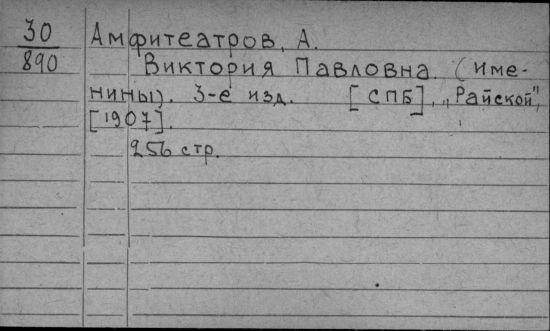 30
890
Амфитеатров, А.
Виктория Павловна. (Име-
нины). 3-е изд. [СПБ], "Райской",
[1907].
256 стр.